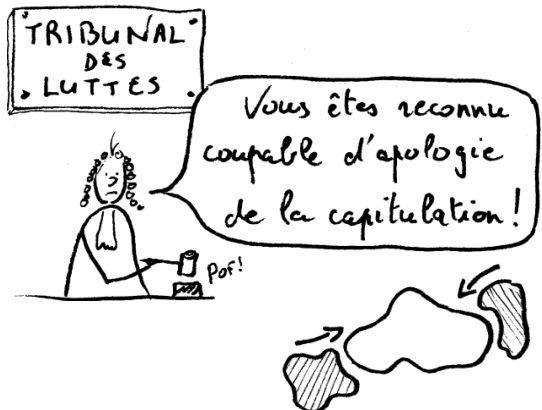 TRIBUNAL
DES
LUTTES
Vous êtes reconnu
coupable d'apologie
de la capitulation !
POF!